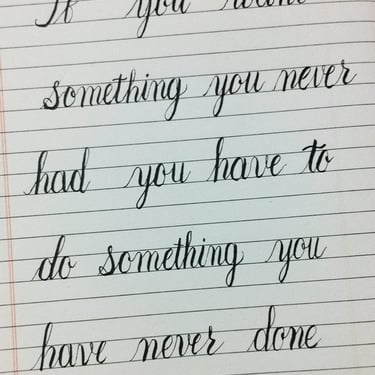 If you want
something you never
had you have to
do something you
have never done